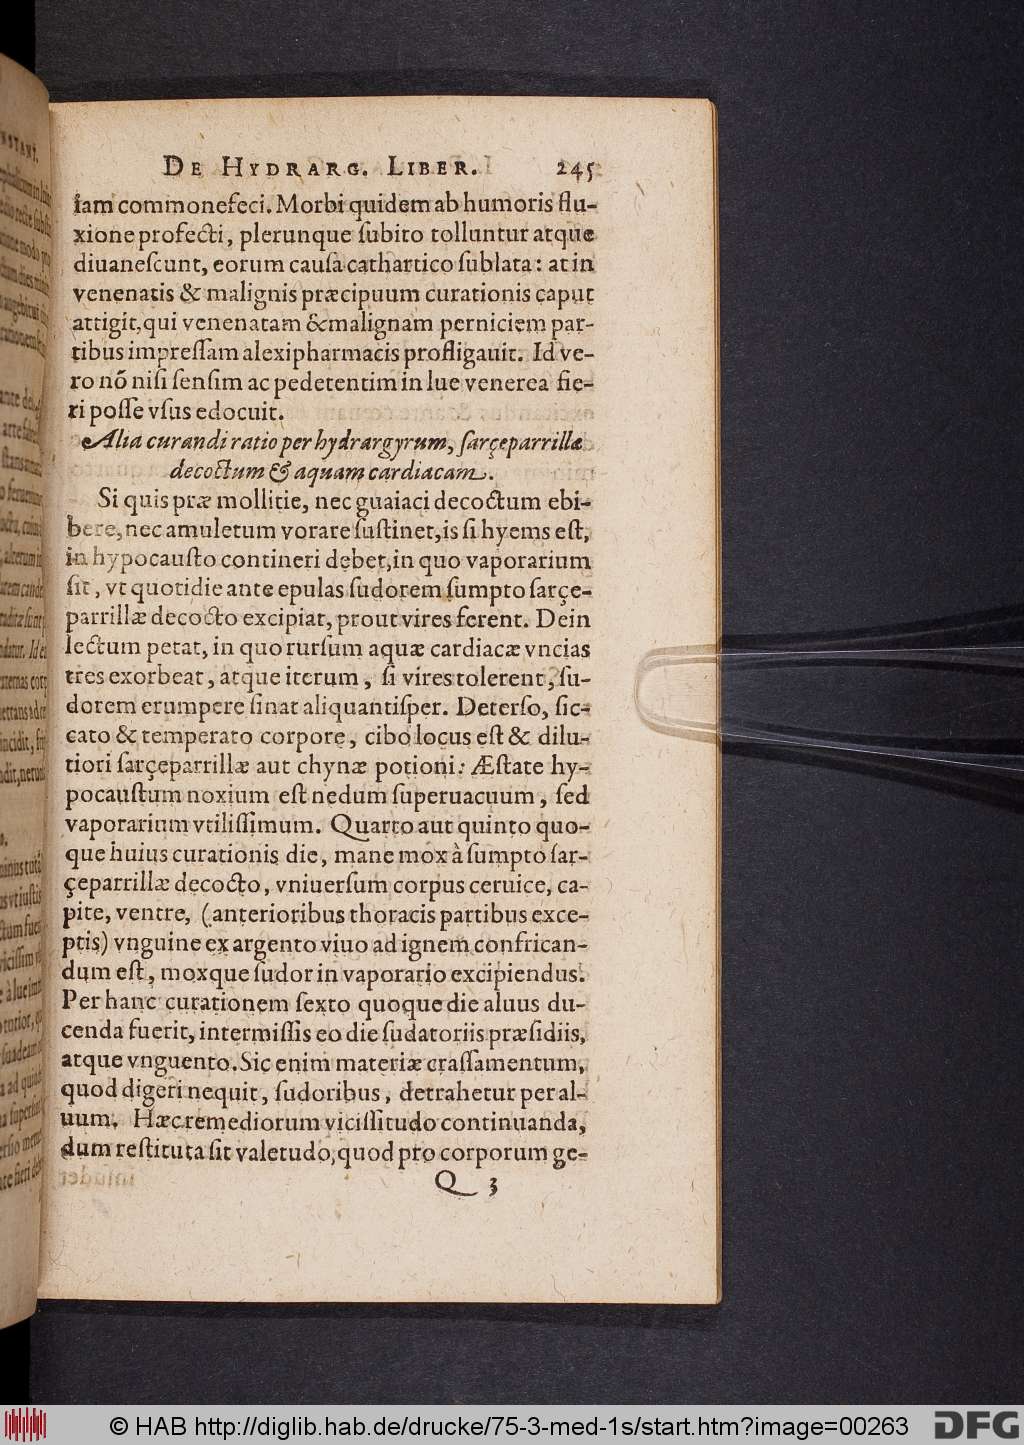 DE HYDRARG. LIBER. 245
iam commonefeci. Morbi quidem ab humoris flu-
xione profecti, plerunque ſubito tolluntur atque
diuaneſcunt, eorum cauſa cathartico ſublata: at in
venenatis & malignis præcipuum curationis caput
attigit, qui venenatam & malignam perniciem par-
tibus impreſſam alexipharmacis profligauit. Id ve-
ro nõ niſi ſenſim ac pedetentim in lue venerea fie-
ri poſſe vſus edocuit.
Alia curandi ratio per hydrargyrum, ſarçeparrillæ
decoctum & aquam cardiacam.
Si quis præ mollitie, nec guaiaci decoctum ebi-
bere, nec amuletum vorare ſuſtinet, is ſi hyems eſt,
in hypocauſto contineri debet, in quo vaporarium
ſit, vt quotidie ante epulas ſudorem ſumpto ſarçe-
parrillæ decocto excipiat, prout vires ferent. Dein
lectum petat, in quo rurſum aquæ cardiacæ vncias
tres exorbeat, atque iterum, ſi vires tolerent, ſu-
dorem erumpere ſinat aliquantiſper. Deterſo, ſic-
cato & temperato corpore, cibo locus eſt & dilu-
tiori ſarçeparrillæ aut chynæ potioni: Æſtate hy-
pocauſtum noxium eſt nedum ſuperuacuum, ſed
vaporarium vtiliſſimum. Quarto aut quinto quo-
que huius curationis die, mane mox à ſumpto ſar-
çeparrillæ decocto, vniuerſum corpus ceruice, ca-
pite, ventre, (anterioribus thoracis partibus exce-
ptis) vnguine ex argento viuo ad ignem confrican-
dum eſt, moxque ſudor in vaporario excipiendus.
Per hanc curationem ſexto quoque die aluus du-
cenda fuerit, intermiſſis eo die ſudatoriis præſidiis,
atque vnguento. Sic enim materiæ craſſamentum,
quod digeri nequit, ſudoribus, detrahetur per al-
uum. Hæc remediorum viciſſitudo continuanda,
dum reſtituta ſit valetudo, quod pro corporum ge-
Q 3
© HAB http://diglib.hab.de/drucke/75-3-med-1s/start.htm?image=00263 DFG